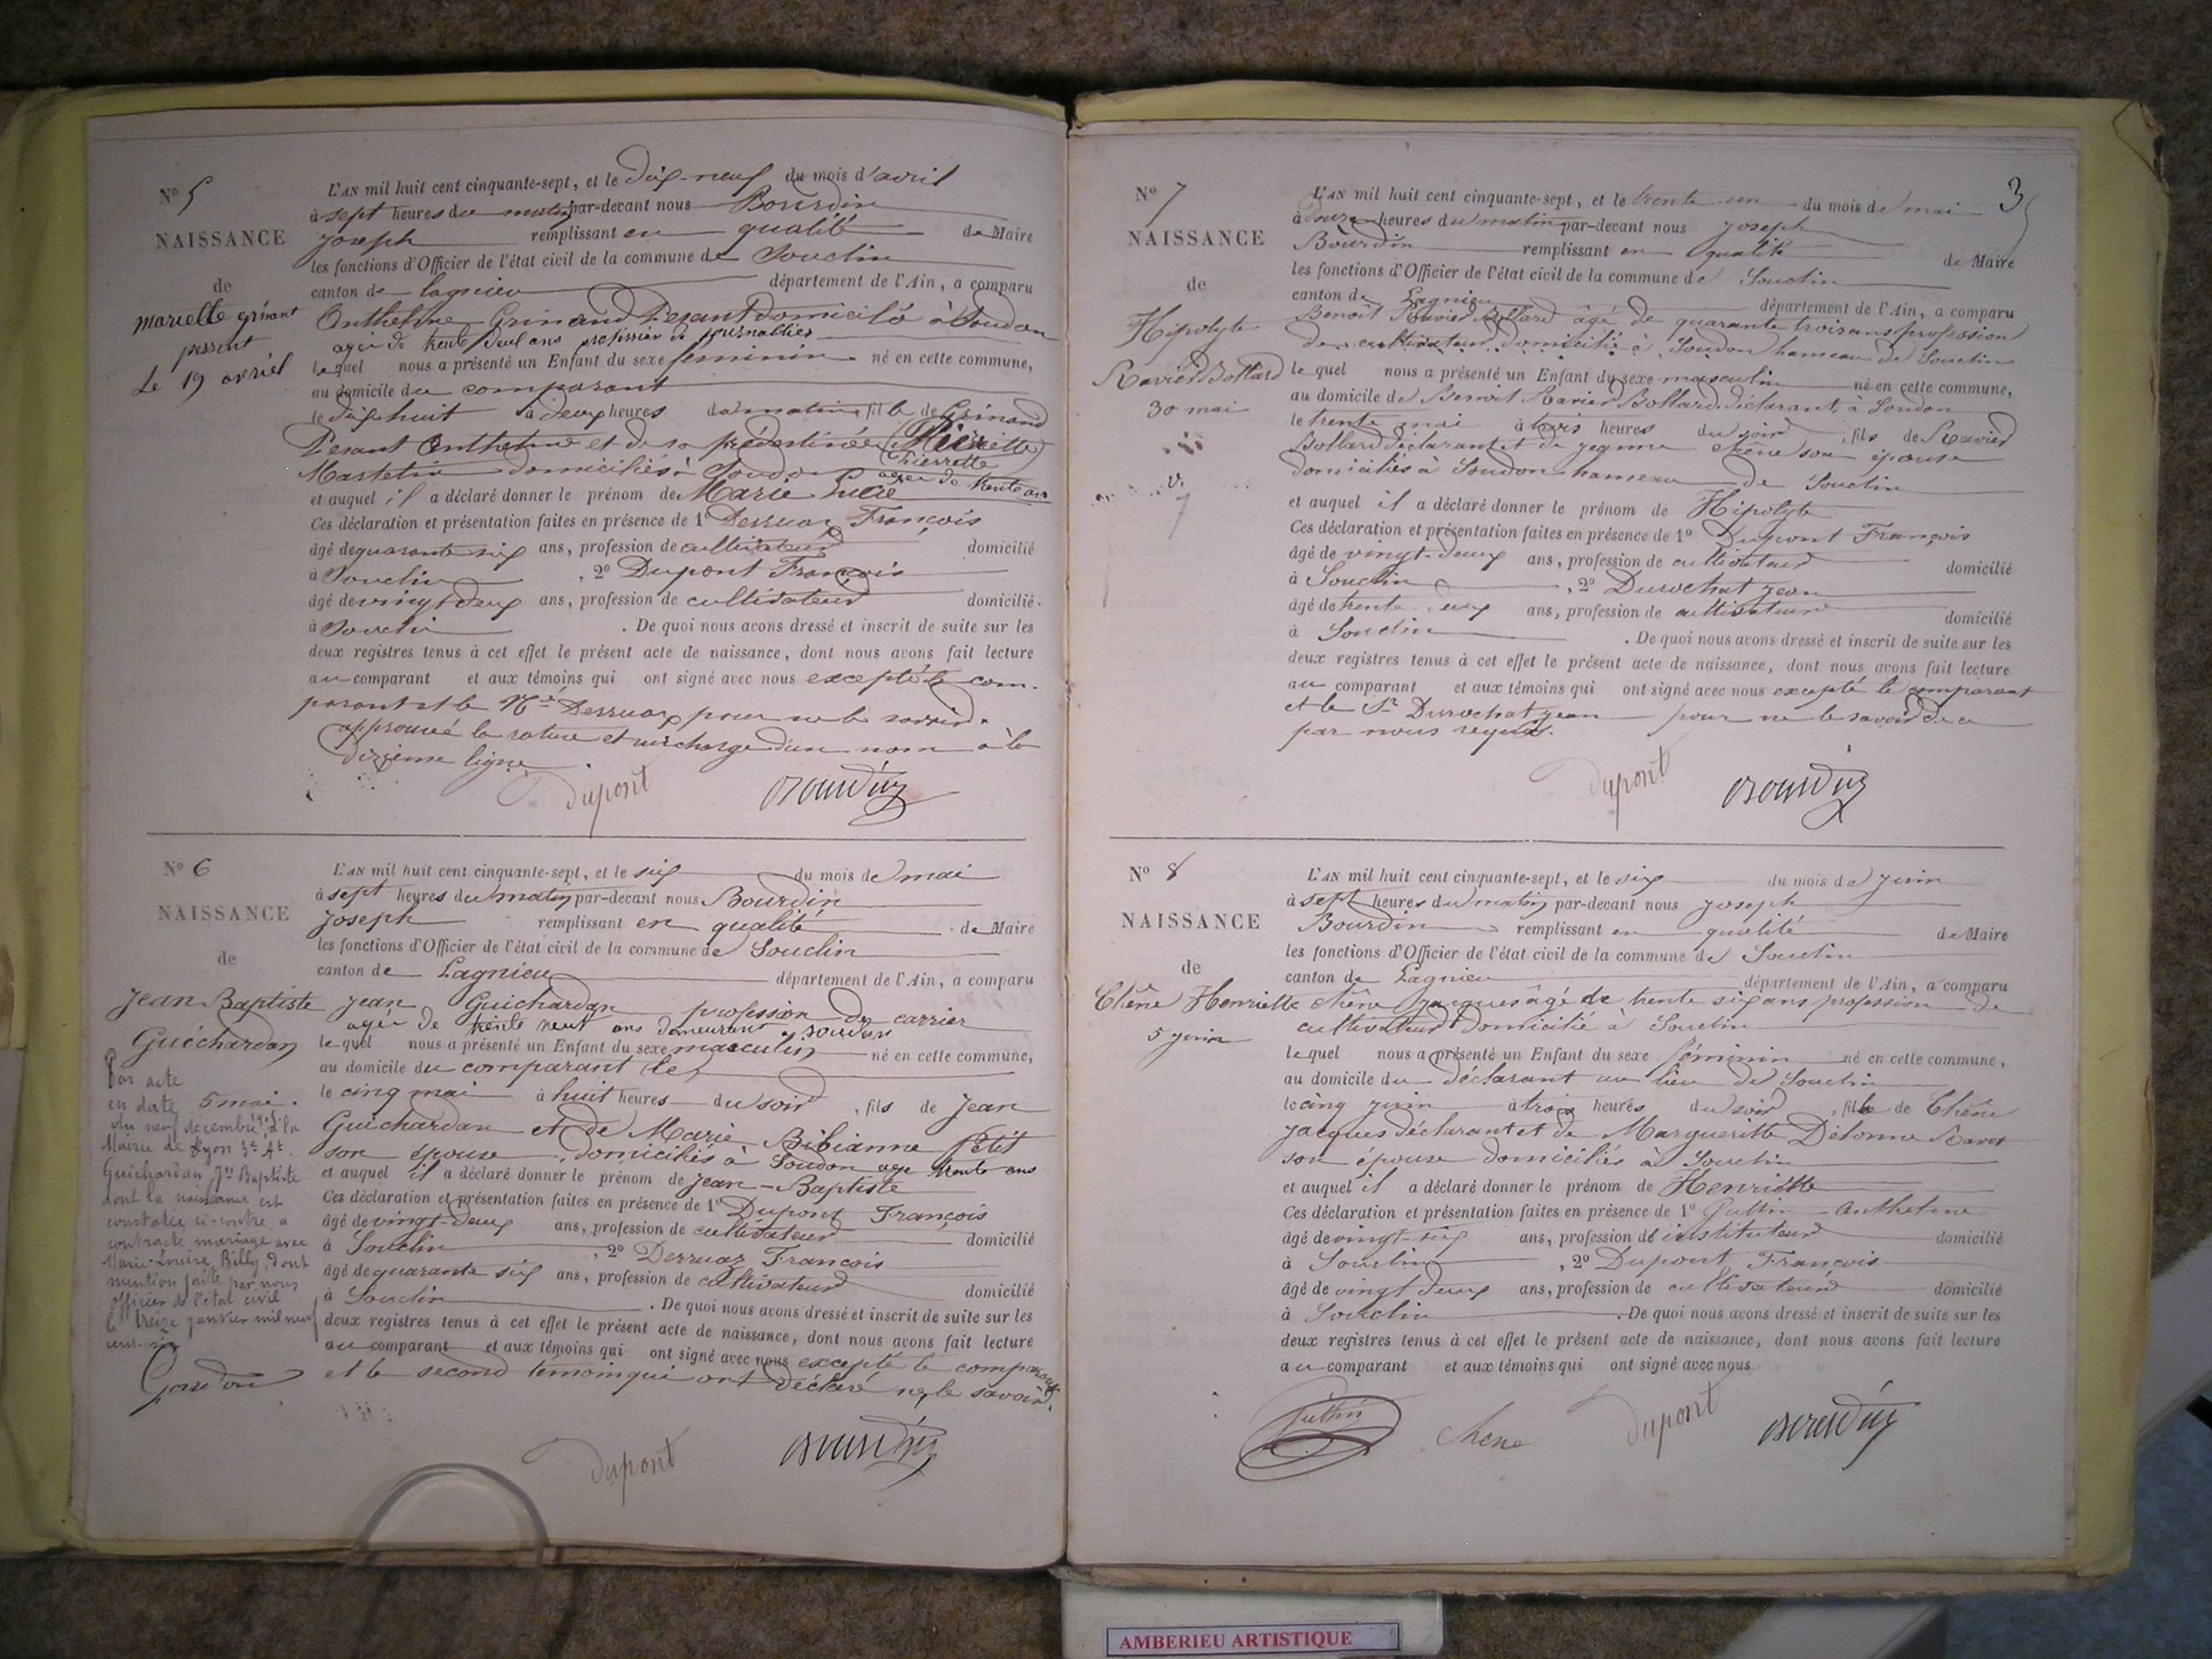 N° 5
NAISSANCE
de
mariette grinant
pesent
Le 19 avriel
L'AN mil huit cent cinquante-sept, et le Dix-neuf du mois d'avril
à sept heures du matin par-devant nous Bourdin
Joseph remplissant en qualité de Maire
les fonctions d'Officier de l'état civil de la commune de Souclin
canton de Lagnieu département de l'Ain, a comparu
Anthelme Grinand Pesant Domicilé à Soudon
agée de trente deux ans profission de journallier
lequel nous a présenté un Enfant du sexe féminin né en cette commune,
au domicile du comparant
le dix huit à deux heures du matin, fille de Grinand
Pesant Anthelme et de sa prédestinée (Pierrette)
Pierrette
Mastelin domiciliés à Soudon agée de trente ans
et auquel il a déclaré donner le prénom de Marie Lucie
Ces déclaration et présentation faites en présence de 1° Derruaz François
âgé de quarante six ans, profession de cultivateur domicilié
à Souclin , 2° Dupont François
âgé de vingt deux ans, profession de cultivateur domicilié
à Souclin . De quoi nous avons dressé et inscrit de suite sur les
deux registres tenus à cet effet le présent acte de naissance, dont nous avons fait lecture
au comparant et aux témoins qui ont signé avec nous excepté le com-
parant et le Derruaz pour ne le savoir.
approuvé la rature et surcharge d'un nom à la
dixieme ligne
Dupont Bourdin
N° 6
NAISSANCE
de
Jean Baptiste
Guichardan
5 mai.
Par acte
en date
du neuf décembre 1905 à la
Mairie de Lyon 3e At.
Guichardan Jn Baptiste
dont la naissance est
constatée ci-contre a
contracté mariage avec
Marie Louise Billy, dont
mention faite par nous
officier de l'état civil
le treize janvier mil neuf
cent six
L'AN mil huit cent cinquante-sept, et le six du mois de mai
à sept heures du matin par-devant nous Bourdin
Joseph remplissant en qualité de Maire
les fonctions d'Officier de l'état civil de la commune de Souclin
canton de Lagnieu département de l'Ain, a comparu
Jean Guichardan profession de carrier
agée de trente neuf ans demeurant à soudon
lequel nous a présenté un Enfant du sexe masculin né en cette commune,
au domicile du comparant le
le cinq mai à huit heures du soir, fils de Jean
Guichardan et de Marie Bibianne Petit
son épouse domiciliés à Soudon age trente ans
et auquel il a déclaré donner le prénom de Jean-Baptiste
Ces déclaration et présentation faites en présence de 1° Dupont François
âgé de vingt-deux ans, profession de cultivateur domicilié
à Souclin , 2° Derruaz François
âgé de quarante six ans, profession de cultivateur domicilié
à Souclin . De quoi nous avons dressé et inscrit de suite sur les
deux registres tenus à cet effet le présent acte de naissance, dont nous avons fait lecture
au comparant et aux témoins qui ont signé avec nous excepté le comparant
et le second témoin qui ont déclaré ne le savoir.
Dupont Bourdin
3
N° 7
NAISSANCE
de
Hipolyte
Ravier Bollard
30 mai
L'AN mil huit cent cinquante-sept, et le trente-un du mois de mai
à onze heures du matin par-devant nous Joseph
Bourdin remplissant en qualité de Maire
les fonctions d'Officier de l'état civil de la commune de Souclin
canton de Lagnieu département de l'Ain, a comparu
Benoît Ravier Bollard âgé de quarante trois ans profession
de cultivateur domicilié à Soudon hameau de Souclin
lequel nous a présenté un Enfant du sexe masculin né en cette commune,
au domicile de Benoit Ravier Bollard déclarant, à Soudon
le trente mai à trois heures du soir, fils de Ravier
Bollard déclarant et de Jeanne Chêne son épouse
domiciliés à Soudon hameau de Souclin
et auquel il a déclaré donner le prénom de Hipolyte
Ces déclaration et présentation faites en présence de 1° Dupont François
âgé de vingt-deux ans, profession de cultivateur domicilié
à Souclin , 2° Durochat Jean
âgé de trente deux ans, profession de cultivateur domicilié
à Souclin . De quoi nous avons dressé et inscrit de suite sur les
deux registres tenus à cet effet le présent acte de naissance, dont nous avons fait lecture
au comparant et aux témoins qui ont signé avec nous excepté le comparant
et le Sr Durochat Jean pour ne le savoir de ce
par nous requis.
Dupont Bourdin
N° 8
NAISSANCE
de
Chêne Henriette
5 juin
L'AN mil huit cent cinquante-sept, et le six du mois de juin
à sept heures du matin par-devant nous Joseph
Bourdin remplissant en qualité de Maire
les fonctions d'Officier de l'état civil de la commune de Souclin
canton de Lagnieu département de l'Ain, a comparu
Chêne Jacques âgé de trente six ans profession de
cultivateur domicilié à Souclin
lequel nous a présenté un Enfant du sexe féminin né en cette commune,
au domicile du déclarant au lieu de Souclin
le cinq juin à trois heures du soir, fille de Chêne
Jacques déclarant et de Margueritte Délonne Ravet
son épouse domiciliés à Souclin
et auquel il a déclaré donner le prénom de Henriette
Ces déclaration et présentation faites en présence de 1° Juttin Anthelme
âgé de vingt-six ans, profession de instituteur domicilié
à Souclin , 2° Dupont François
âgé de vingt deux ans, profession de cultivateur domicilié
à Souclin . De quoi nous avons dressé et inscrit de suite sur les
deux registres tenus à cet effet le présent acte de naissance, dont nous avons fait lecture
au comparant et aux témoins qui ont signé avec nous
Juttin Chene Dupont Bourdin
AMBERIEU ARTISTIQUE